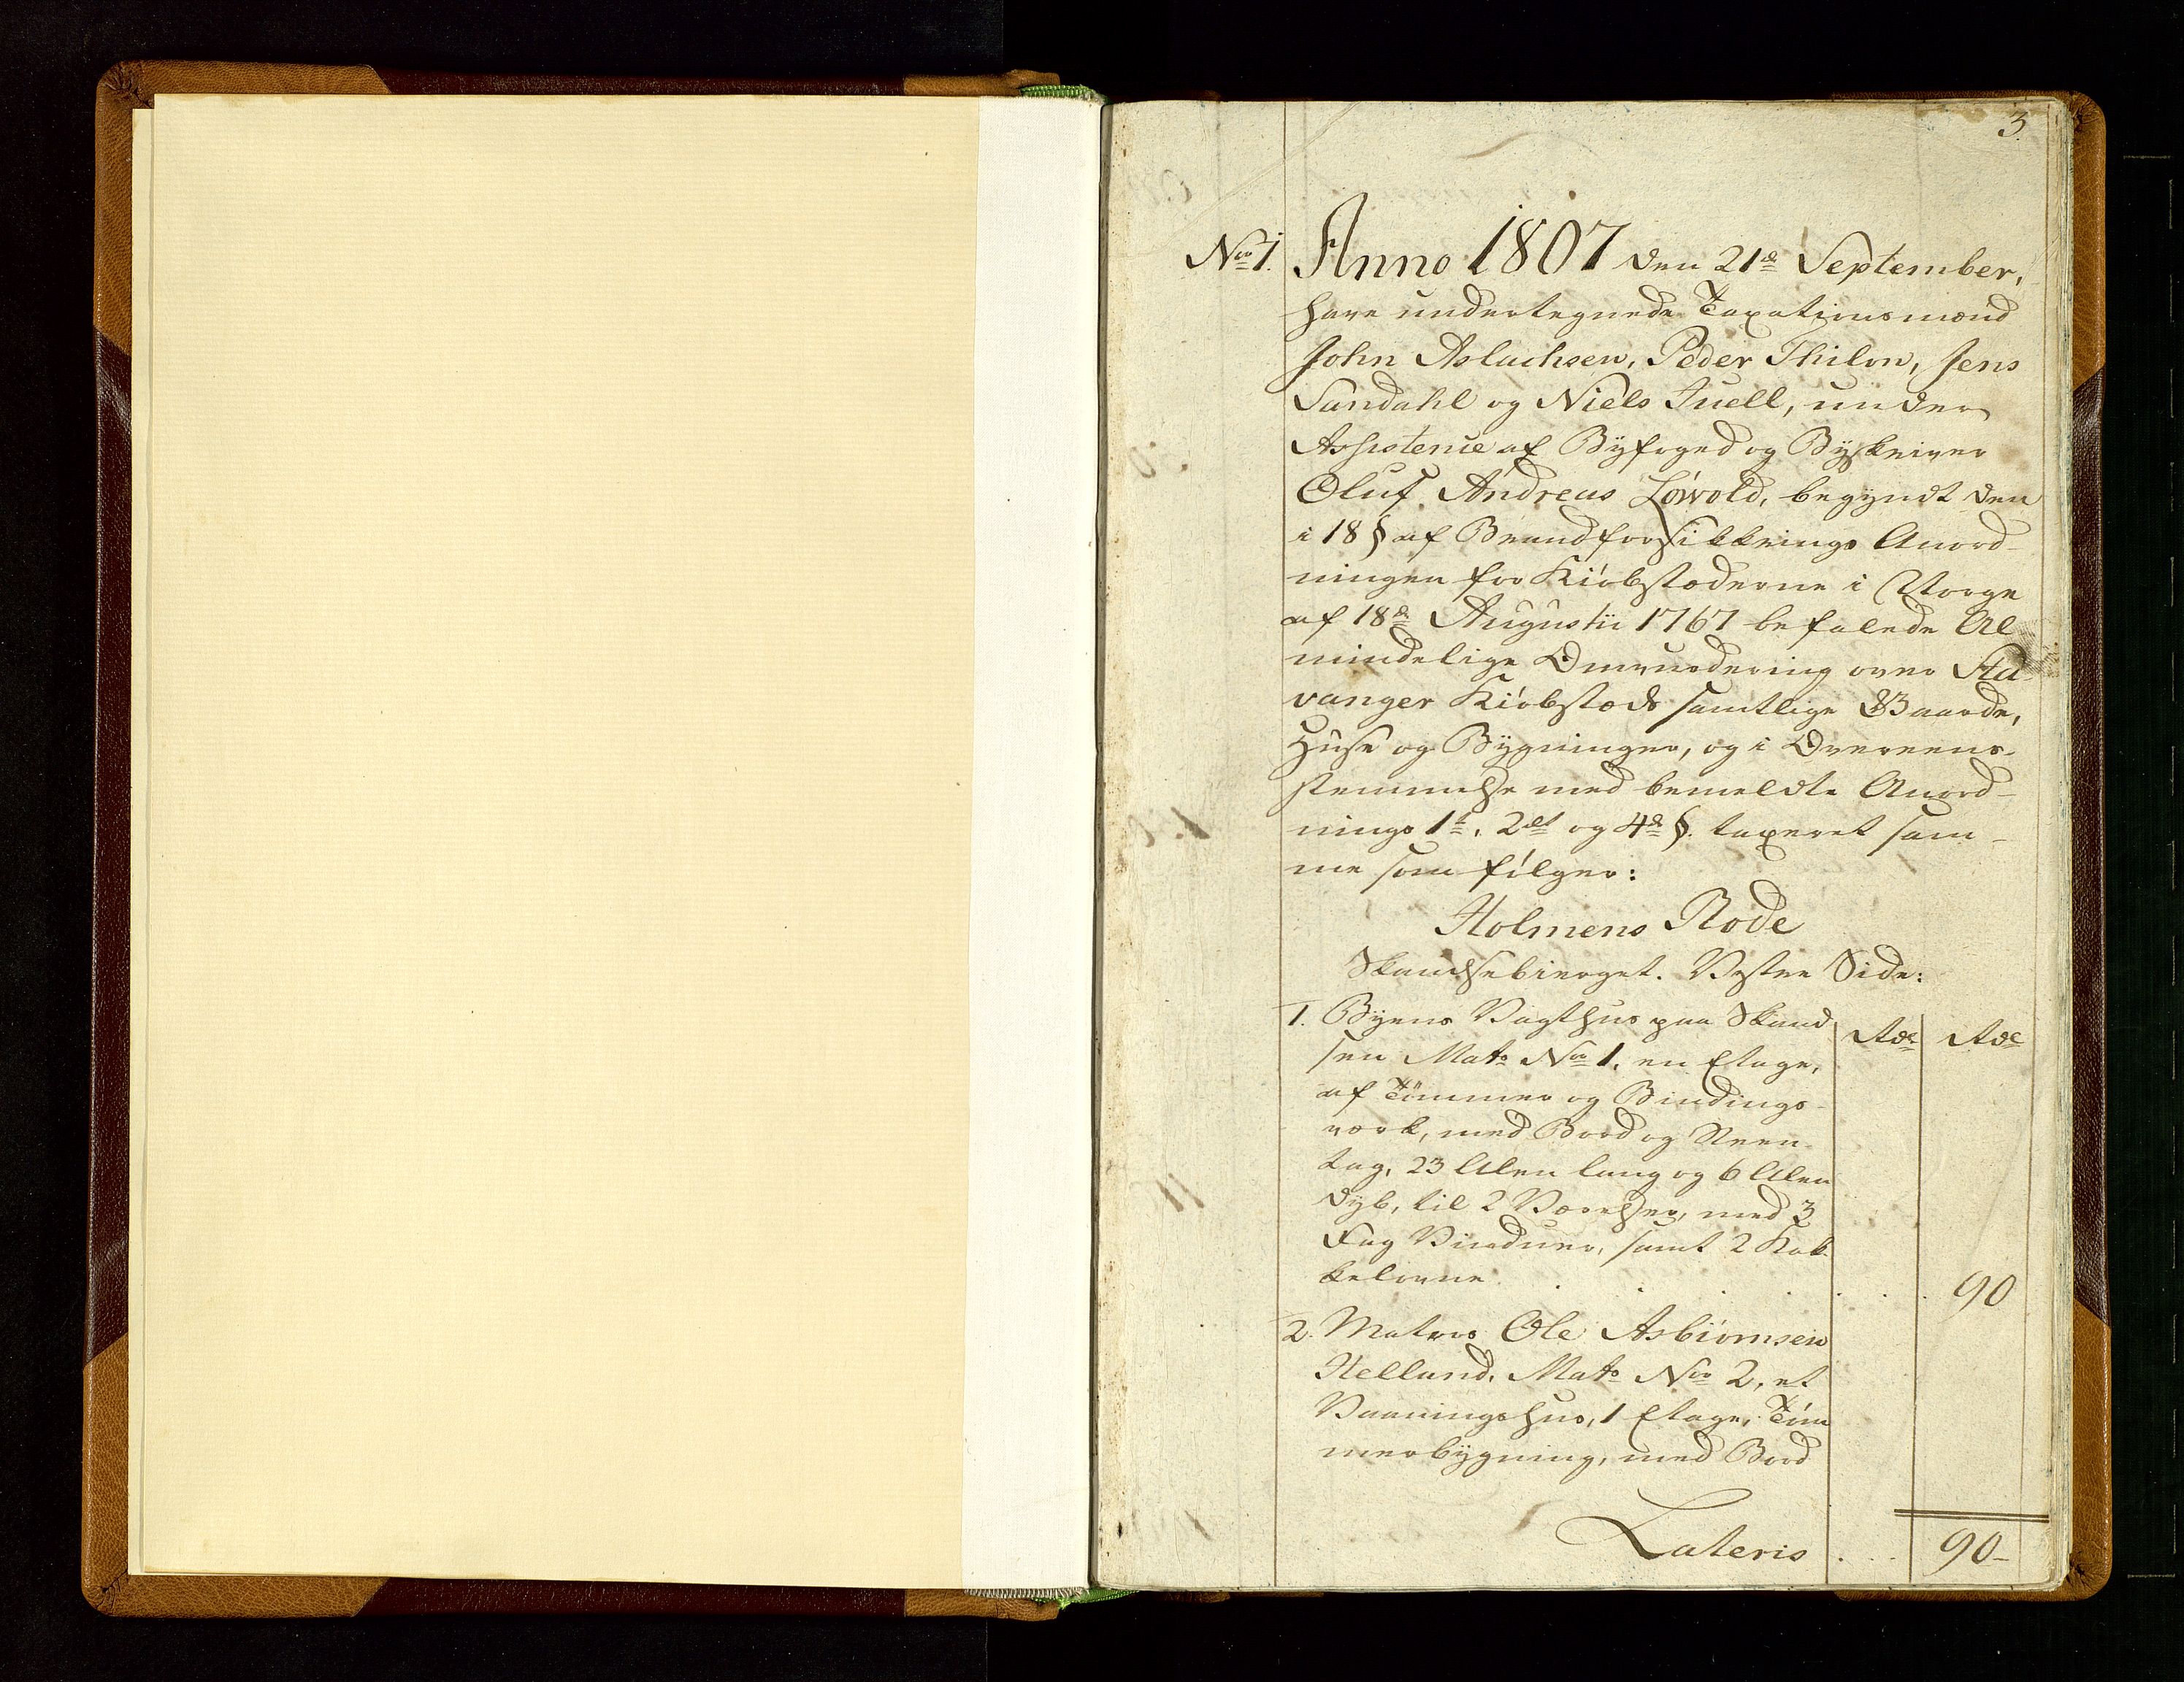 3.
No 1. Anno 1807 den 21de September,
have undertegnede Taxationsmænd
John Aslachsen, Peder Thilon, Jens
Sundahl og Niels Juell, under
Assistence af Byfoged og Byskriver
Oluf Andreas Löwold, begyndt den
i 18 § af Brandforsikkrings Anord-
ningen for Kiöbstæderne i Norge
af 18de Augustii 1767 befalede Al-
mindelige Omvurdering over Sta-
vanger Kiöbstæds samtlige Gaarde,
Huse og Bygninger, og i Overeens-
stemmelse med bemeldte Anord-
nings 1te, 2det og 4de §. taxeret sam-
me som fölger:
Holmens Rode
Skandsebierget. Vestre Side:
1. Byens Vagthus paa Skand
sen Mats No 1. en Etage,
af Tömmer og Bindings-
værk, med Bord og Steen
tag, 23 Alen lang og 6 Alen
dyb, til 2 Værelser, med 3
Fag Vinduer, samt 2 Kak-
kelovne . . . . . . . 90
Rdr Rdr
2. Matros Ole Asbiörnsen
Helland, Mats No 2, et
Vaaningshus, 1 Etage, Töm
merbygning, med Bord
Lateris . . . 90-